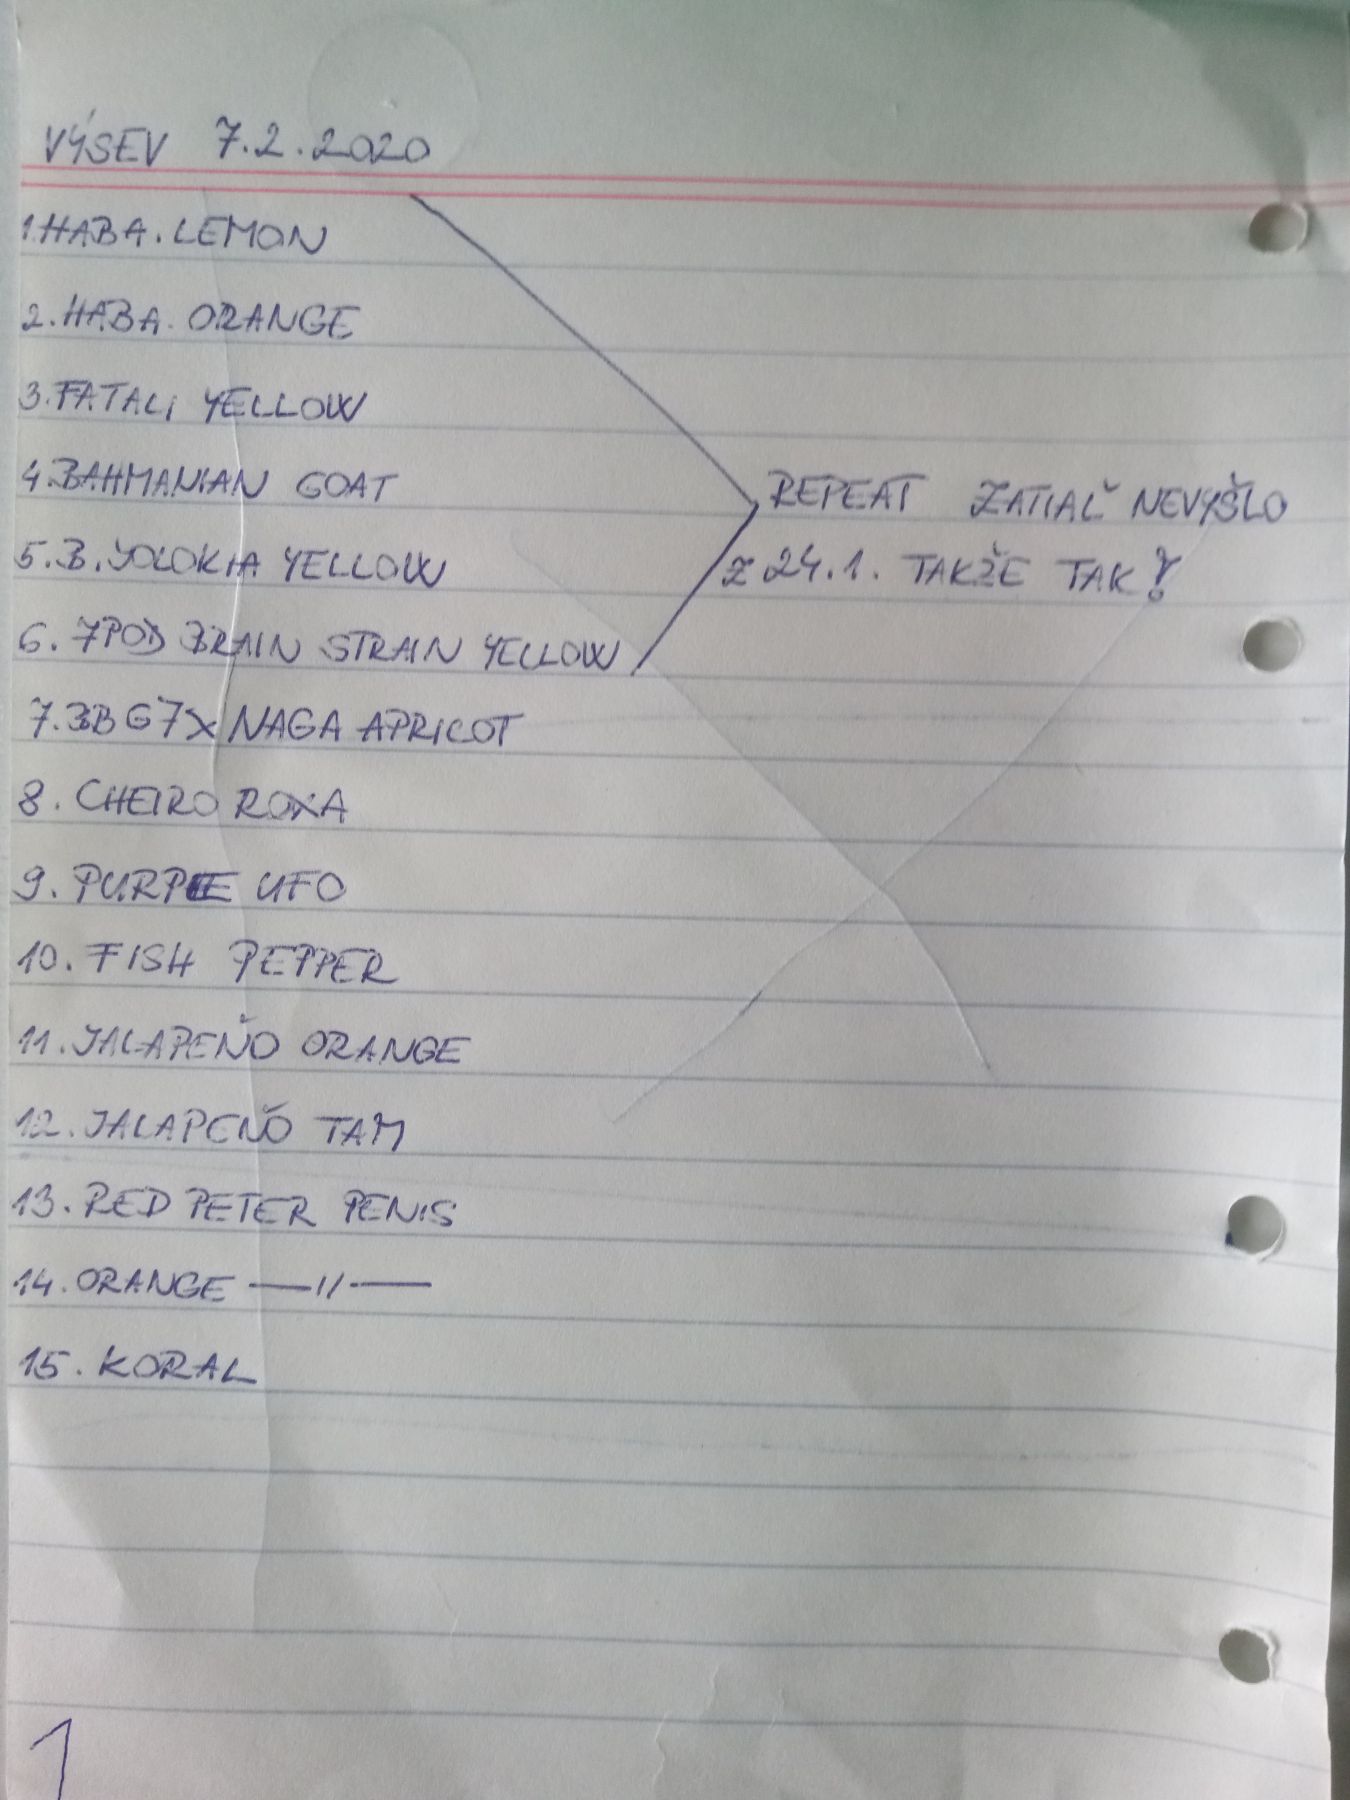 VÝSEV 7.2.2020
1. HABA. LEMON
2. HABA. ORANGE
3. FATALI YELLOW
4. BAHMANIAN GOAT
REPEAT ZATIAĽ NEVYŠLO
5. B. JOLOKIA YELLOW
Z 24.1. TAKŽE TAK!
6. 7POD BRAIN STRAIN YELLOW
7. BBG7 X NAGA APRICOT
8. CHEIRO ROXA
9. PURPLE UFO
10. FISH PEPPER
11. JALAPEŇO ORANGE
12. JALAPEŇO TAM
13. RED PETER PENIS
14. ORANGE —//—
15. KORAL
1